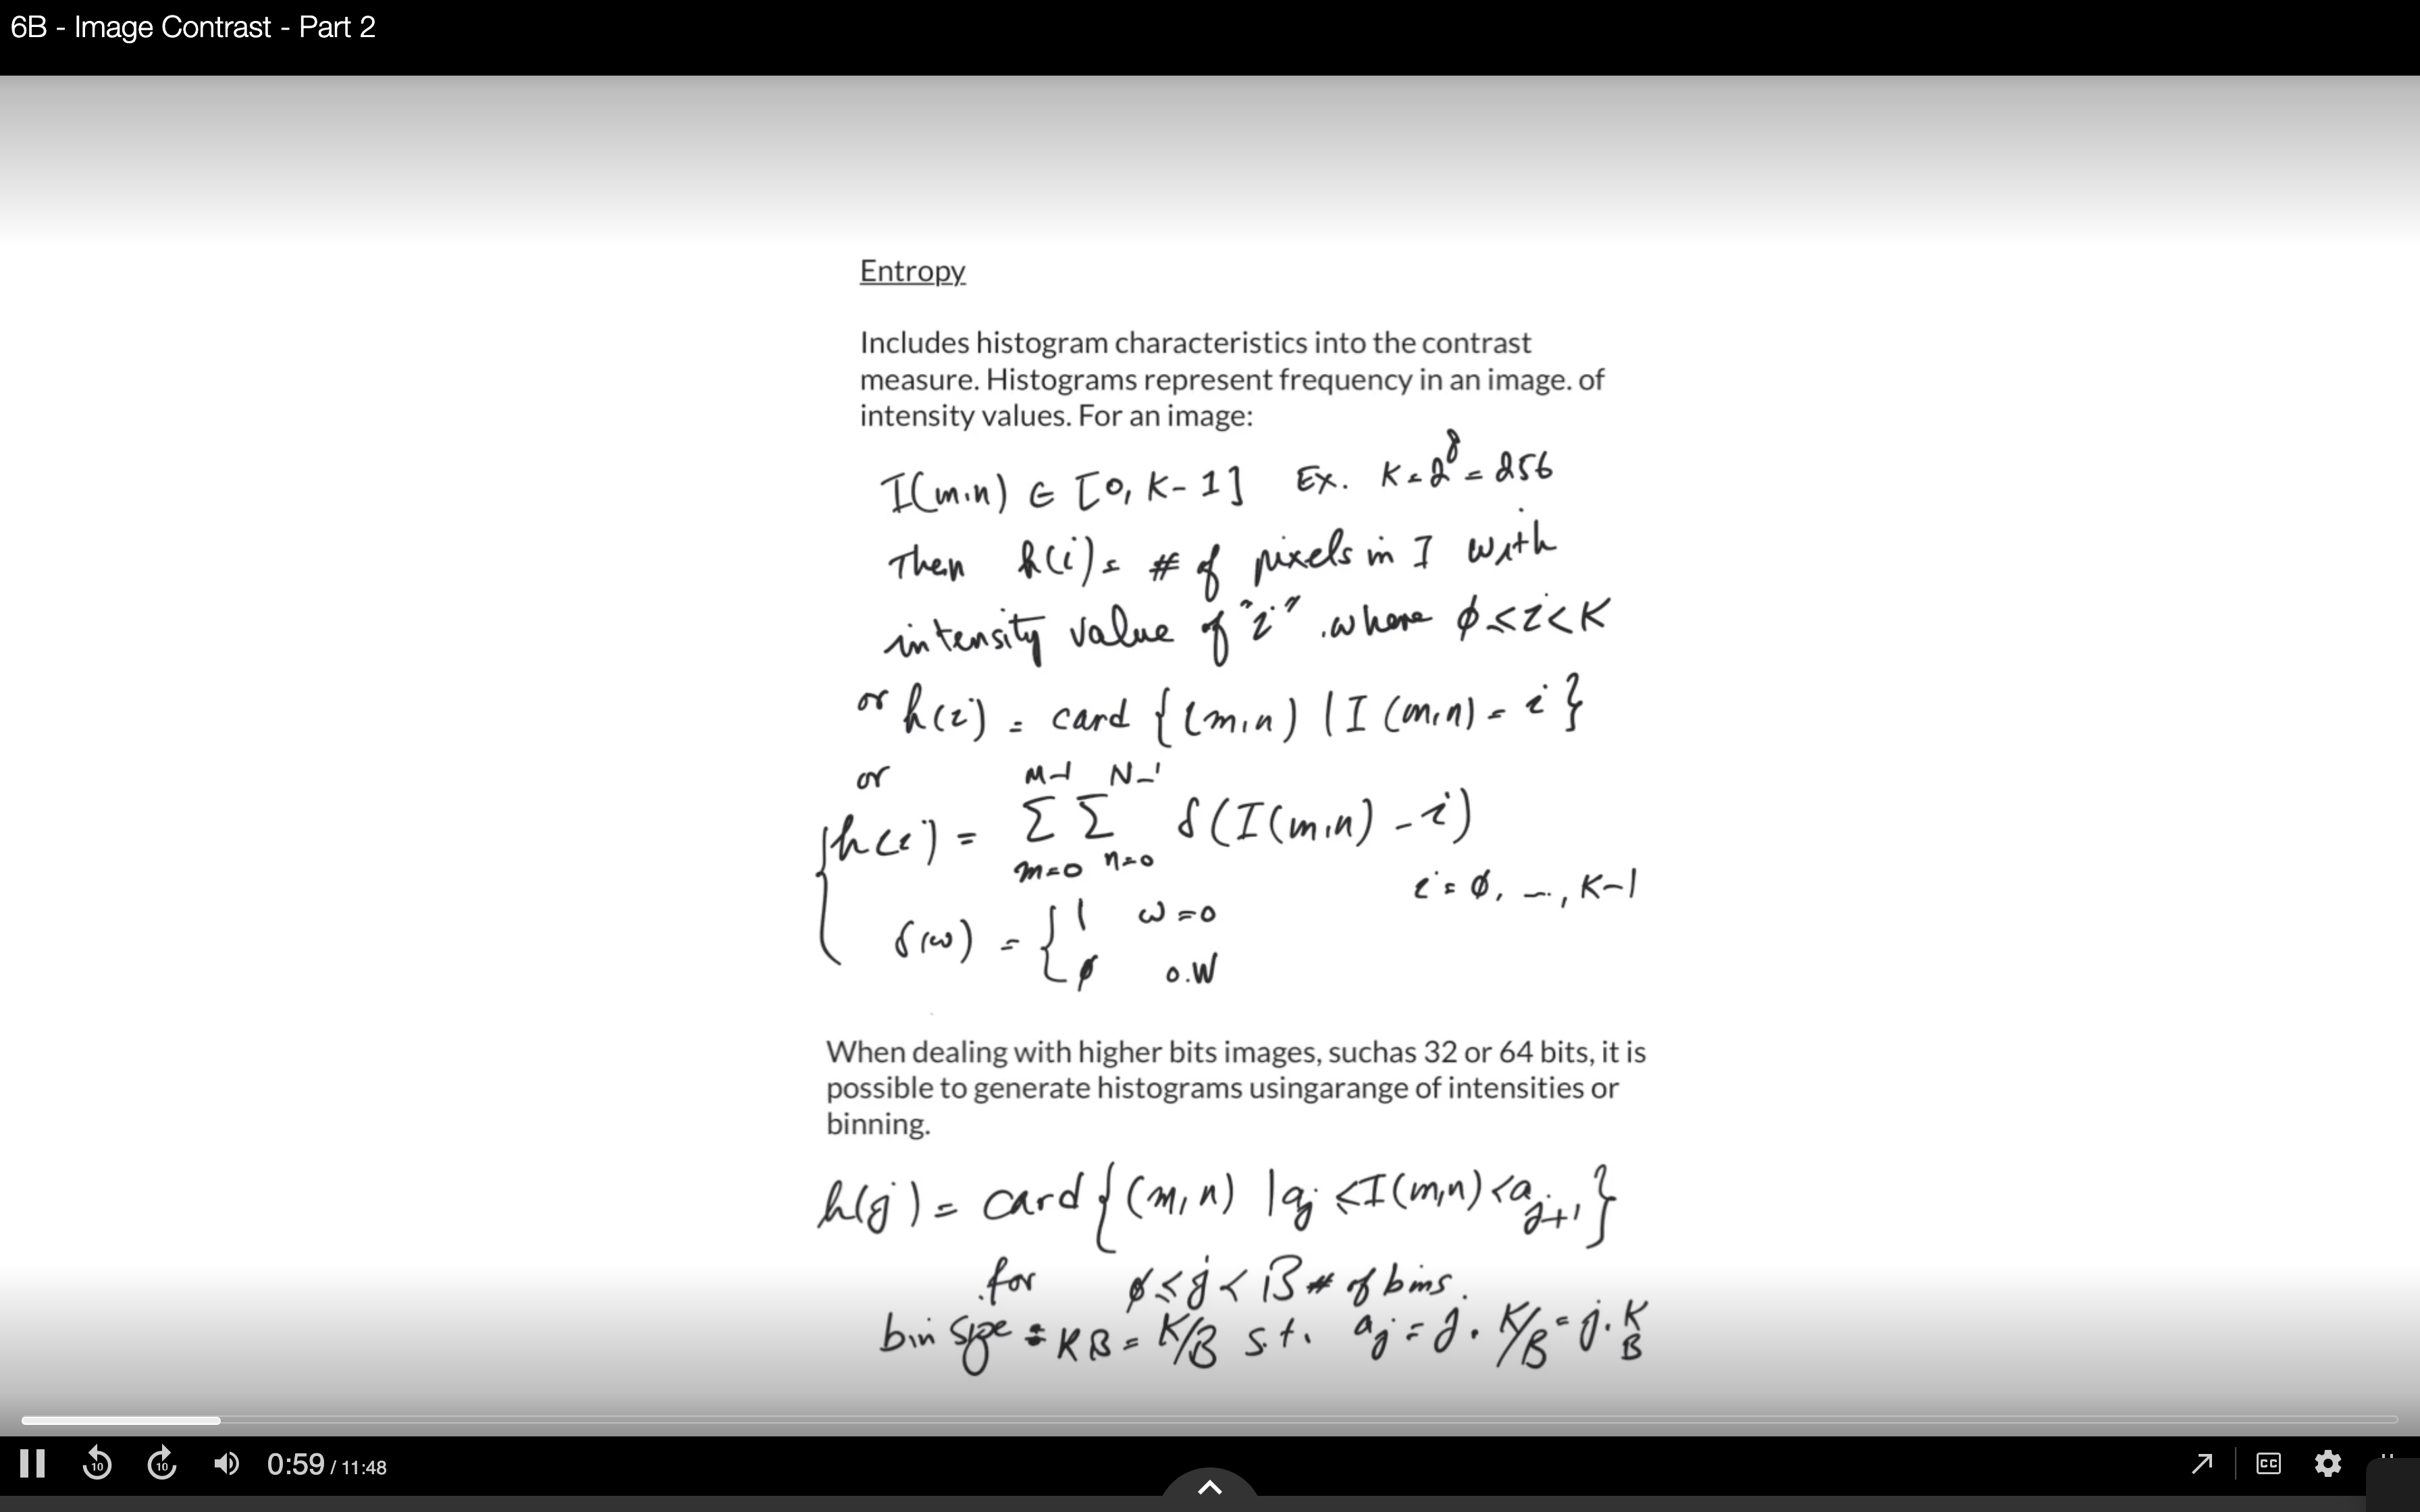 6B - Image Contrast - Part 2
Entropy
Includes histogram characteristics into the contrast
measure. Histograms represent frequency in an image. of
intensity values. For an image:
I(m,n) ∈ [0, K-1] Ex. K=2⁸=256
Then h(i)= # of pixels in I with
intensity value of "i" where ϕ≤i<K
or h(i) = card {(m,n) | I(m,n) = i}
or
M-1 N-1
h(i) = Σ Σ δ(I(m,n) - i)
m=0 n=0
i = ϕ, ..., K-1
δ(ω) = { 1 ω=0
ϕ o.W
When dealing with higher bits images, suchas 32 or 64 bits, it is
possible to generate histograms usingarange of intensities or
binning.
h(j) = card{(m,n) | aj ≤ I(m,n) < aj+1}
for ϕ≤j<B # of bins.
bin size = KB = K/B s.t. aj = j. K/B = j. K/B
10 10 0:59 / 11:48 CC